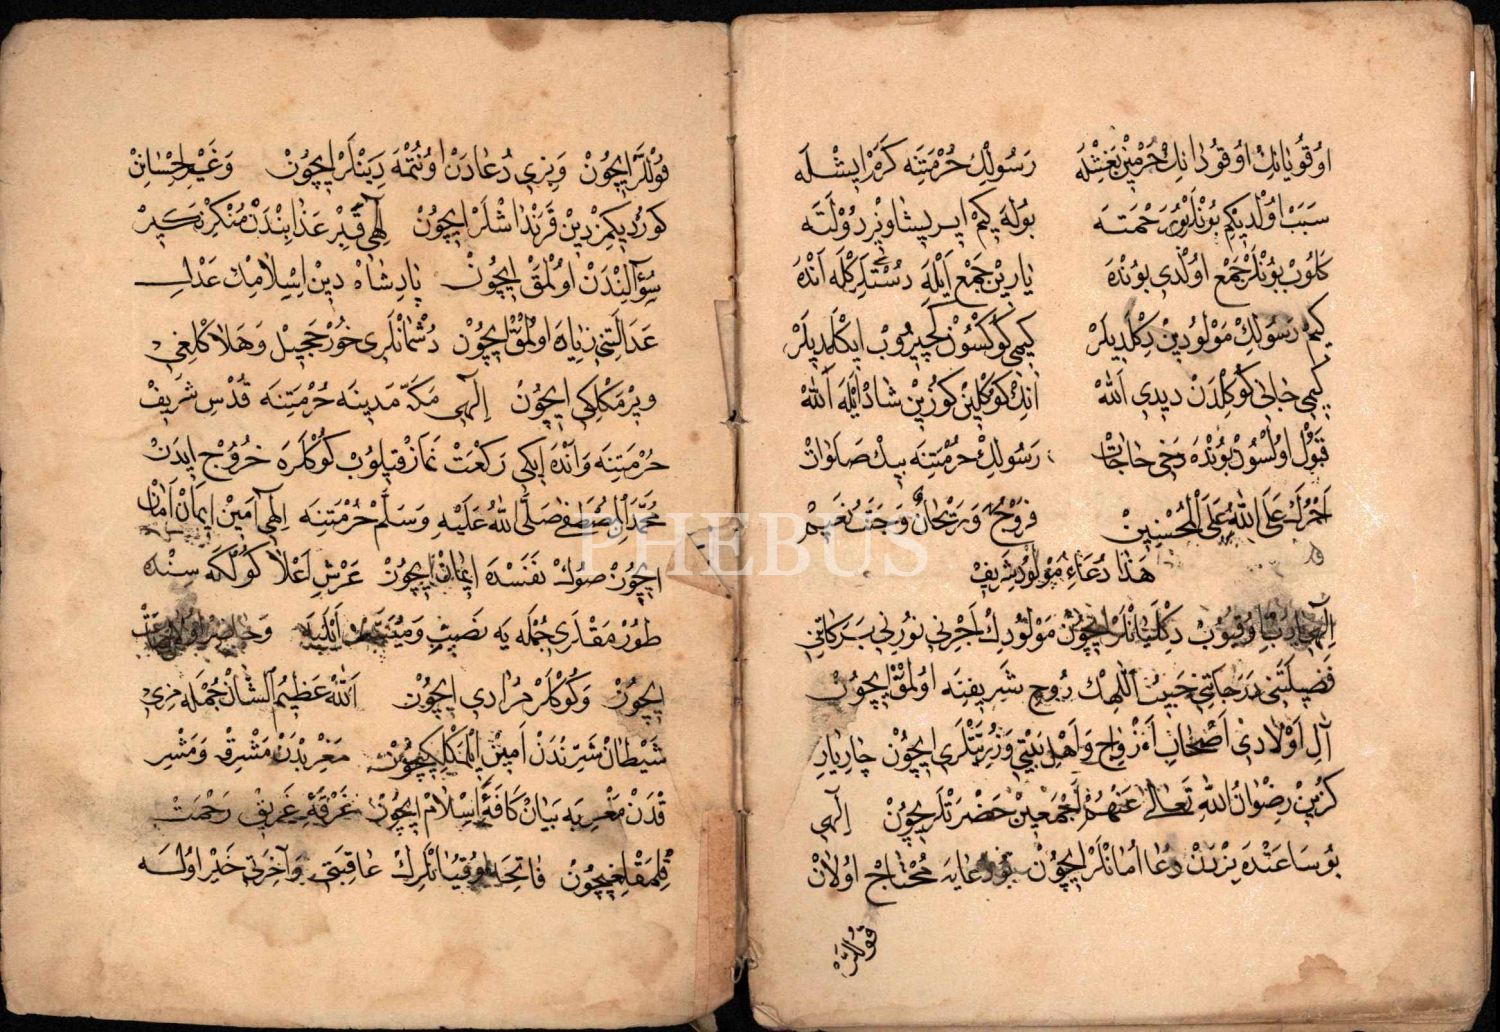 اوُقُويَانِكْ اوُقُودَانِكْ حُرْمَتِنْ بَغِشْلَه رَسُولِكْ حُرْمَتِنَه كَرَمْ ايشْلَه
سَبَبْ اوُلْدِيكِمْ بُونْلَرْ رَحْمَتَه بُولَه كِيمْ ايرِيشَاوُزْ دَوْلَتَه
كَلُوبْ بُونْلَرْ جَمْعْ اوُلْدِي بُونْدَه يَارِينْ جَمْعْ اَيْلَه دُسْتْلَرْكَلَه اَنْدَه
كِيمْ رَسُولِكْ مَوْلُودِينْ دِكْلَدِيلَرْ كِيمِي كُوكْسُونْ كَچِيرُوبْ ايكْلَدِيلَرْ
كِيمِي جَانِ كُوكِلْدَنْ دِيدِي اَللّٰهْ اَنِكْ كُوكْلِينْ كُوزِينْ شَادْ اَيْلَه اَللّٰهْ
قَبُولْ اوُلْسُونْ بُونْدَه دَخِي حَاجَاتْ رَسُولِكْ حُرْمَتِنَه بِيكْ صَلَوَاتْ
اَجْرُكَ عَلَى اللّٰهِ عَلَى الْمُحْسِنِينْ فَرَوْحٌ وَرَيْحَانٌ وَجَنَّتُ نَعِيمْ
هٰذَا دُعَاءِ مَوْلُودِ شَرِيفْ
اِلٰهِي يَارَبْ اوُقِيُوبْ دِكْلَيَانْلَرْ ايچُونْ مَوْلُودِكْ اَجْرِنِي نُورْنِي بَرَكَاتِنِي
فَضِيلَتَنِي دَرَجَاتِنِي حَبِيبُ اللّٰهِكْ رُوحِ شَرِيفِنَه اوُلْمَقْ ايچُونْ
آلِ اَوْلَادِي اَصْحَابِ اَزْوَاجِ وَاَهْلِ بَيْتِي وَذُرِّيَّتْلَرِي ايچُونْ چَارْيَارِ
كُزِينْ رِضْوَانُ اللّٰهِ تَعَالَى عَنْهُمْ اَجْمَعِينْ حَضْرَتْلَرِيچُونْ اِلٰهِي
بُو سَاعَتْدَه بِزْدَنْ دُعَا اُمَانْلَرْ ايچُونْ بُو دُعَايَه مُحْتَاجْ اوُلَانْ
قُولْلَرْ
قُولْلَرْ ايچُونْ وَبِزِي دُعَادَنْ اوُنُتْمَه دِينْلَرْ ايچُونْ وَغَيْرِ اِحْسَانِنْ
كُورْدِيكِمِزْ دِينْ قَرَنْدَاشْلَرْ ايچُونْ اِلٰهِي قَبِرْ عَذَابِنْدَنْ مُنْكِرْنَكِيرْ
سُؤَالِنْدَنْ اوُلْمَقْ ايچُونْ پَادِشَاهْ دِينِ اِسْلَامِكْ عَدْلِ
عَدَالَتِي زِيَادَه اوُلْمَقْ ايچُونْ دُشْمَانْلَرِي خُورْ حَجِيلْ وَهَلَاكْلِغِي
وِيرْمَكْلِكِي ايچُونْ اِلٰهِي مَكَّه مَدِينَه حُرْمَتِنَه قُدْسِ شَرِيفْ
حُرْمَتِنَه وَاَنْدَه اِيكِي رَكْعَتْ نَمَازْ قِيلُوبْ كُوكْلَرَه خُرُوجْ ايدَنْ
مُحَمَّدَ الْمُصْطَفَى صَلَّى اللّٰهُ عَلَيْهِ وَسَلَّمْ حُرْمَتِنَه اِلٰهِي آمِينْ اِيمَانْ اَمَانْ
ايچُونْ صُوكْ نَفَسْدَه اِيمَانْ ايچُونْ عَرْشِ اَعْلَا كُولْكَه سِنْدَه
طُورْمَقْلَرِي جُمْلَه يَه نَصِيبْ وَمُيَسَّرْ اَيْلَيَه وَحَاضِرْ
ايچُونْ وَكُوكْلَرْ مُرَادِي ايچُونْ اَللّٰهُ عَظِيمُ الشَّانْ جُمْلَه مِزِي
شَيْطَانْ شَرِّنْدَنْ اَمِينْ مَغْرِبْدَنْ مَشْرِقَه وَمَشْرِ
قْدَنْ مَغْرِبَه بَيَانْ كَافَّه اِسْلَامْ ايچُونْ غَرْقَه غَرِيقْ رَحْمَتْ
قِلْمَقْلِغِيچُونْ فَاتِحَه اوُقِيَانْلَرِكْ عَاقِبَتِي وَآخِرَتِي خَيْرْ اوُلَه
PHEBUS